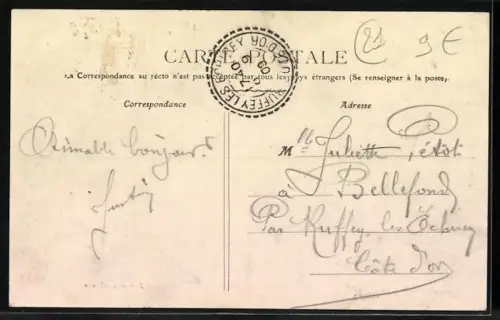 21 9 €
CARTE POSTALE
La Correspondance au recto n'est pas acceptée par tous les pays étrangers (Se renseigner à la poste)
RUFFEY LES ECHIREY
CÔTE D'OR
Correspondance
Adresse
Aimable bonjour.
M lle Juliette
à Bellefond
Par Ruffey-les-Echirey
Côte d'or